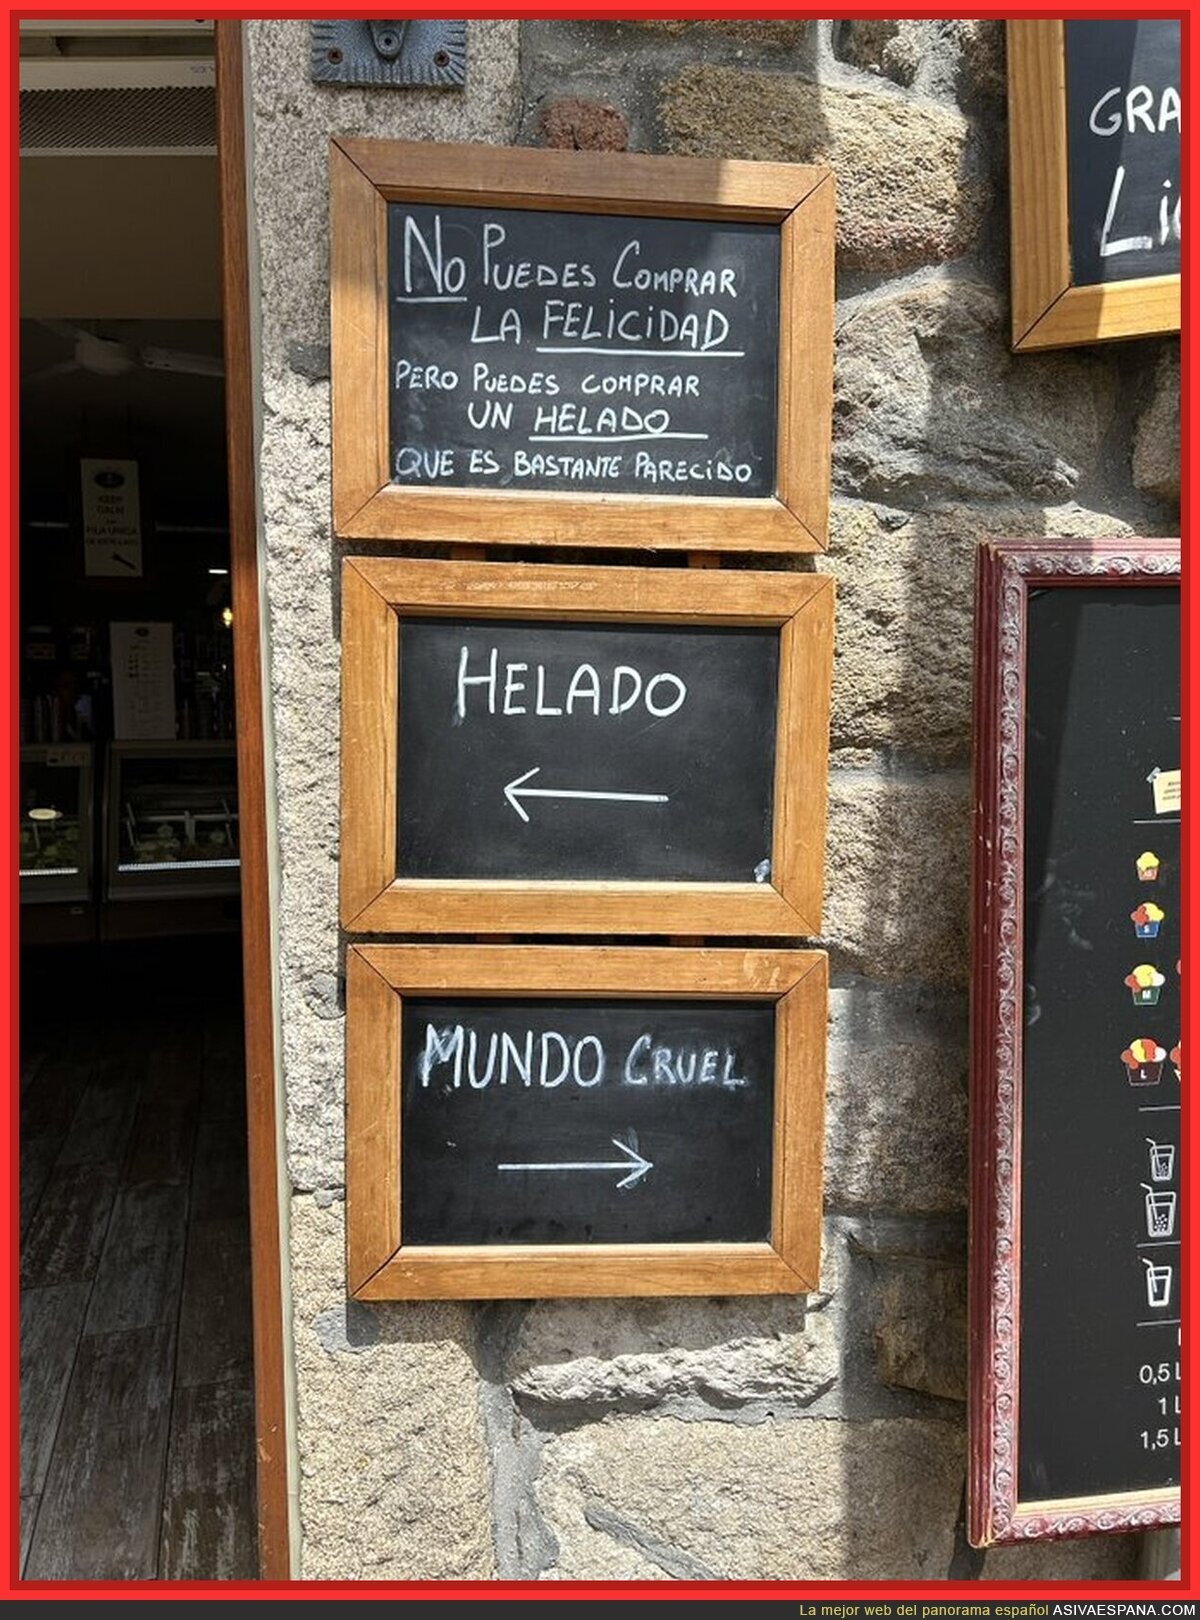 No PUEDES COMPRAR
LA FELICIDAD
PERO PUEDES COMPRAR
UN HELADO
QUE ES BASTANTE PARECIDO
HELADO
←
MUNDO CRUEL
→
GRA
Li
KEEP
CALM
FILA UNICA
S
M
L
0,5 L
1 L
1,5 L
La mejor web del panorama español ASIVAESPANA.COM